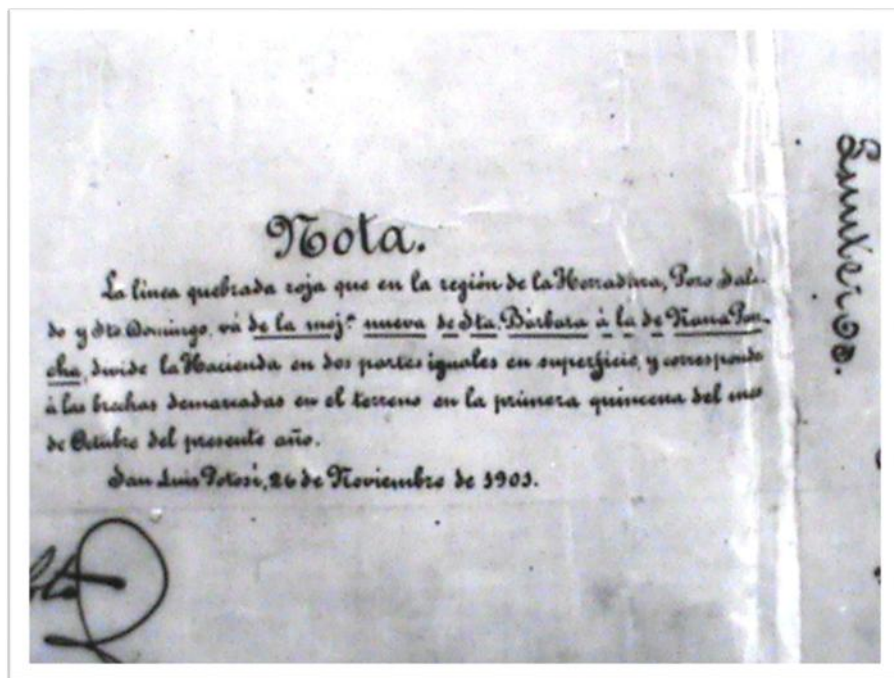 Nota.
La línea quebrada roja que en la región de la Herradura, Pozo Sala-
do y Sto. Domingo, vá de la moj.ª nueva de Sta. Bárbara á la de Nana Pon-
cha, divide la Hacienda en dos partes iguales en superficie, y corresponde
á las brechas demarcadas en el terreno en la primera quincena del mes
de Octubre del presente año.
San Luis Potosí, 26 de Noviembre de 1903.